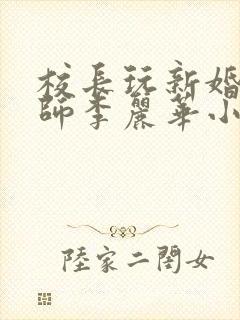 校長玩新婚
師李麗華小
陸家二閨女